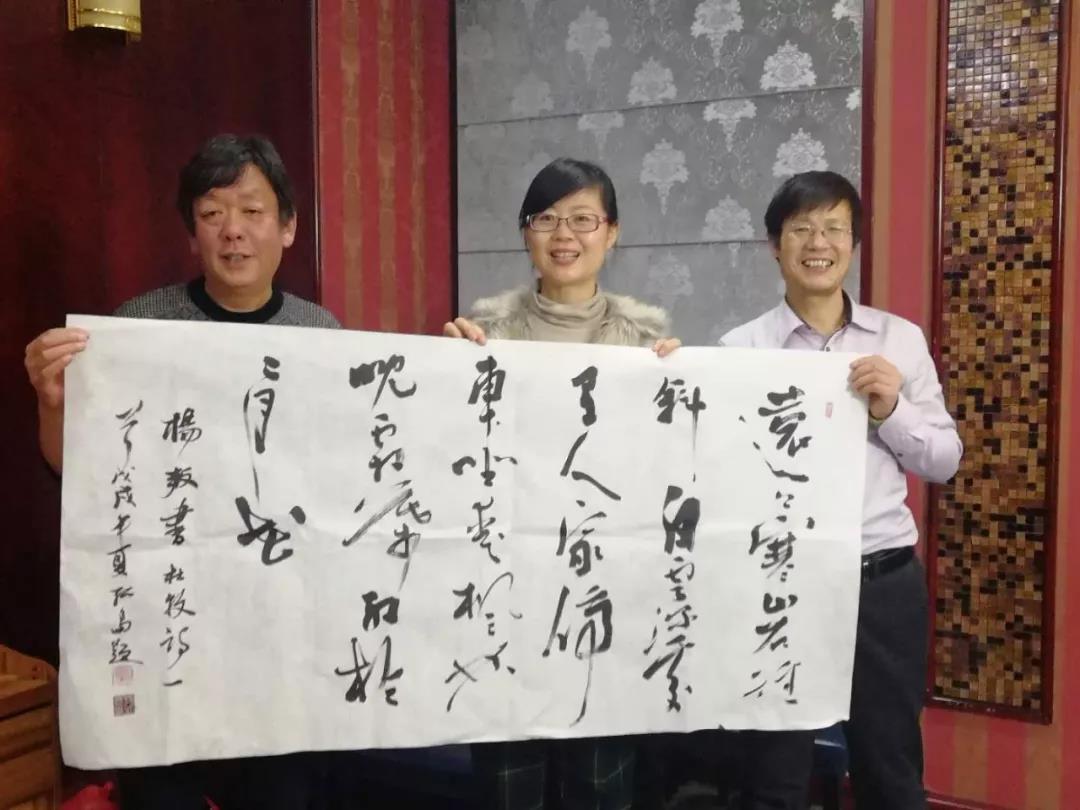 遠上寒山石徑
斜白雲深處
有人家停
車坐愛楓林
晚霜葉紅於
二月花
楊書杜牧詩一
首戊戌年夏島題